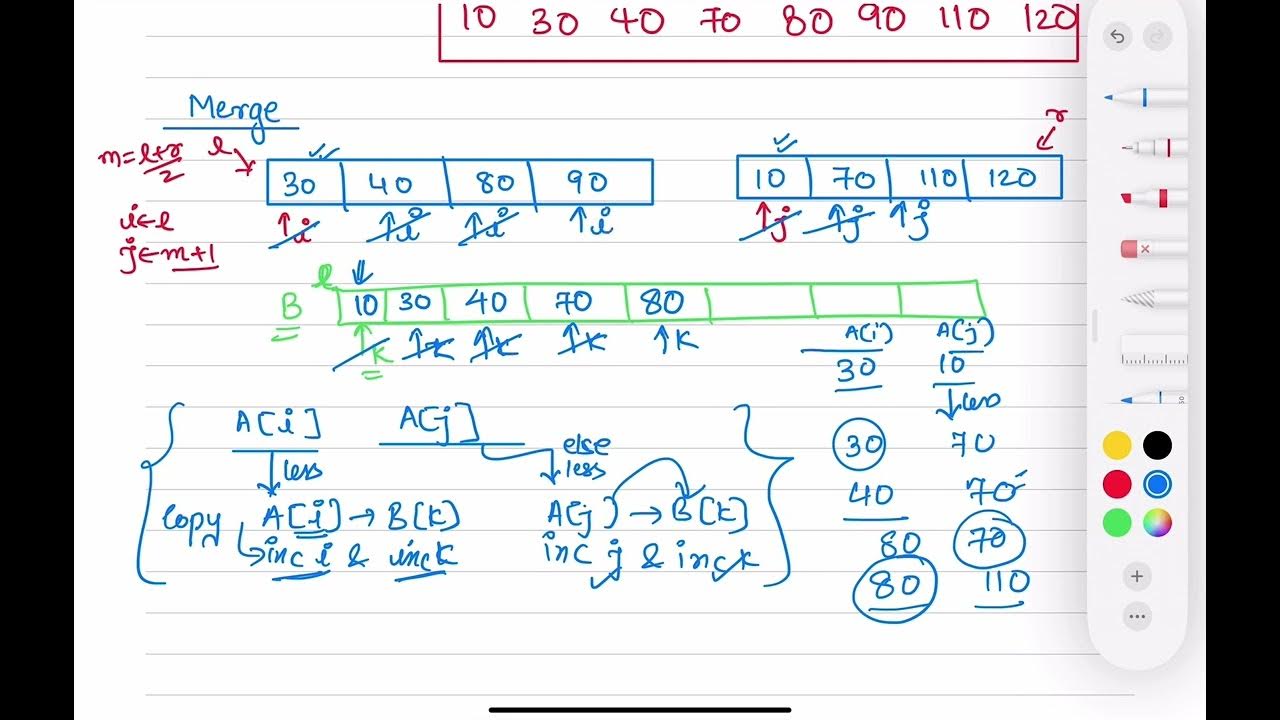 10 30 40 70 80 90 110 120
Merge
m=l+r/2
l
r
30 40 80 90
10 70 110 120
i←l
j←m+1
i i i i
j j j
l
B
10 30 40 70 80
k k k k k
A(i) A(j)
30 10
less
30 70
40 70
80 70
80 110
A[i] A[j]
less
else
less
copy A[i] → B[k] A[j] → B[k]
inc i & inc k inc j & inc k